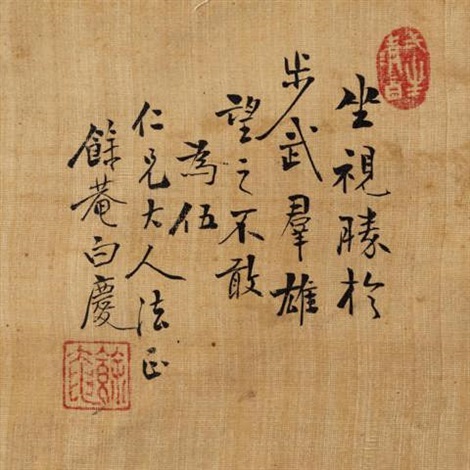 坐視勝於
步武羣雄
望之不敢
為伍
仁兄大人法正
餘菴白慶